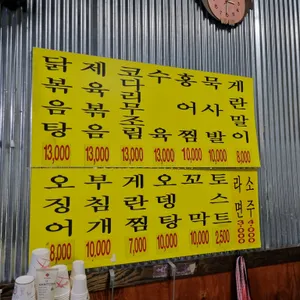 닭볶음탕
13,000
제육볶음
13,000
코다리무조림
13,000
수육
13,000
홍어찜
10,000
묵사발
10,000
계란말이
8,000
오징어
8,000
부침개
10,000
계란찜
7,000
오뎅탕
10,000
꼬막
10,000
토스트
2,500
라면
3,000
소주
4,000